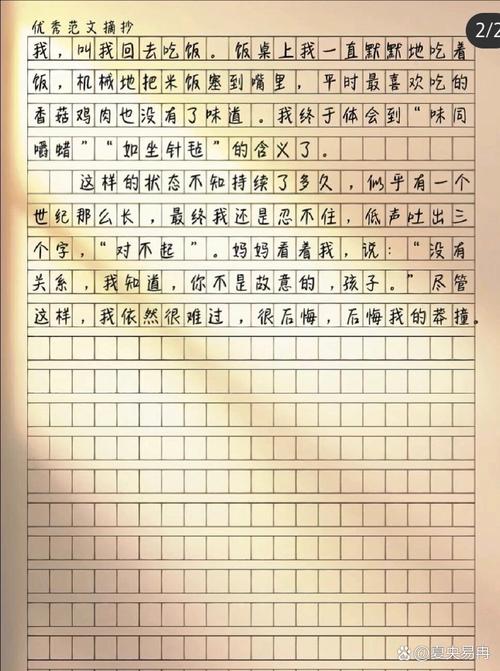 优秀范文摘抄
2/2
我，叫我回去吃饭。饭桌上我一直默默地吃着
饭，机械地把米饭塞到嘴里，平时最喜欢吃的
香菇鸡肉也没有了味道。我终于体会到“味同
嚼蜡”“如坐针毡”的含义了。
这样的状态不知持续了多久，似乎有一个
世纪那么长，最终我还是忍不住，低声吐出三
个字，“对不起”。妈妈看着我，说：“没有
关系，我知道，你不是故意的，孩子。”尽管
这样，我依然很难过，很后悔，后悔我的莽撞。
夏央易冉